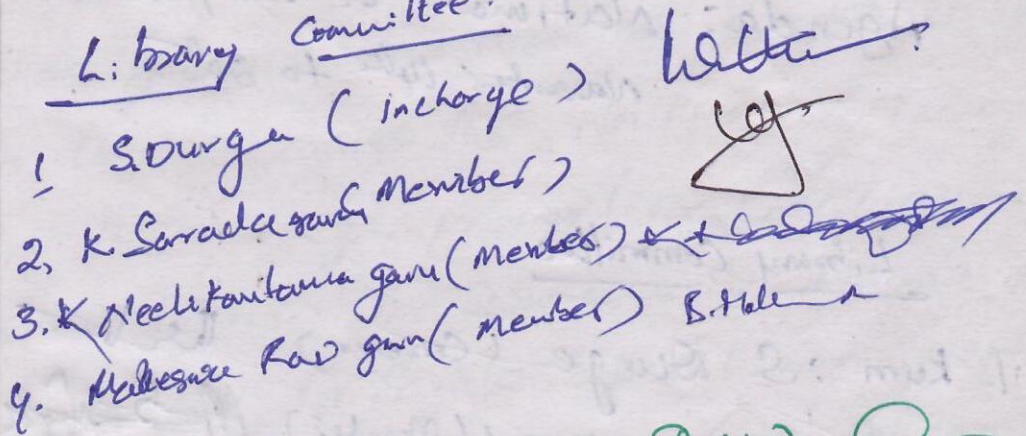 Library Committee:
1 S. Durga (incharge)
2, K. Sarada garu (Member)
3. K Neelakantamma garu (Member)
4. Maheswara Rao garu (Member) B. Mahe